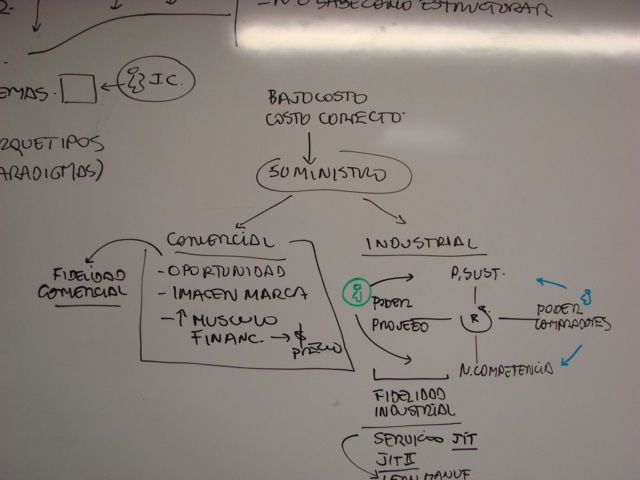 - NO SABE COMO ESTRUCTURAR
EMAS.
I.C.
RQUETIPOS
ARADIGMAS)
BAJO COSTO
COSTO CORRECTO.
SUMINISTRO
COMERCIAL
- OPORTUNIDAD
- IMAGEN MARCA
- ↑ MUSCULO
FINANC. → $
PRECIO
FIDELIDAD
COMERCIAL
INDUSTRIAL
P, SUST.
PODER
PROVEED
R
PODER
COMPRADORES
N. COMPETENCIA
FIDELIDAD
INDUSTRIAL
SERVICIOS JIT
JIT II
LEAN MANUF